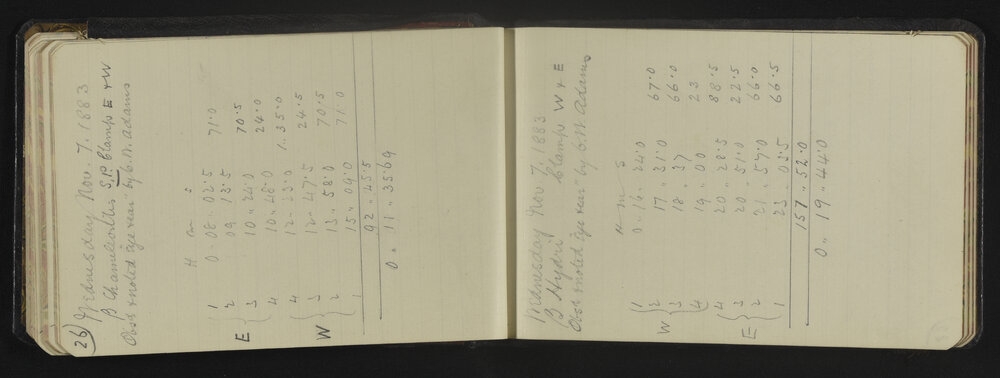 26) Wednesday Nov. 7. 1883
β Chameleontis S.P. Clamps E & W
Obsd & noted eye & ear by C. W. Adams
H m s
E 1 0 . 08 . 02.5 71.0
2 09 13.5
3 10 " 24.0 70.5
4 10 " 48.0 24.0
W 4 12 " 23.0 1 . 35.0
3 12 " 47.5 24.5
2 13 " 58.0 70.5
1 15 " 09.0 71.0
92 " 45.5
0 " 11 " 35.69
Wednesday Nov 7. 1883
β Hydri Clamps W & E
Obsd & noted eye & ear by C. W. Adams
H m s
W 1 0 " 16 " 24.0
2 17 " 31.0 67.0
3 18 " 37 66.0
4 19 " 00 23
E 4 20 " 28.5 88.5
3 20 " 51.0 22.5
2 21 " 57.0 66.0
1 23 " 03.5 66.5
157 " 52.0
0 " 19 " 44.0